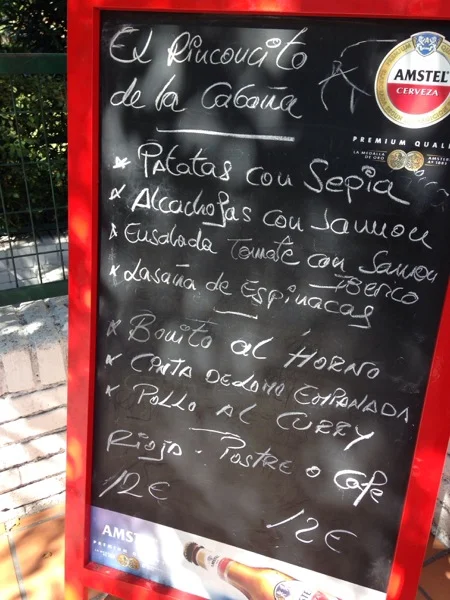 El Rinconcito
de la Cabaña
AMSTEL
CERVEZA
PREMIUM QUALI
LA MEDALLA
DE ORO
AMSTE
* PATATAS con Sepia
* Alcachofas con Jamon
* Ensalada Tomate con Jamon
IBERICO
* Lasaña de Espinacas
* Bonito al HORNO
* CINTA DE LOMO EMPANADA
* POLLO AL CURRY
Rioja - POSTRE o Cafe
12€
12€
AMST
PREMIUM